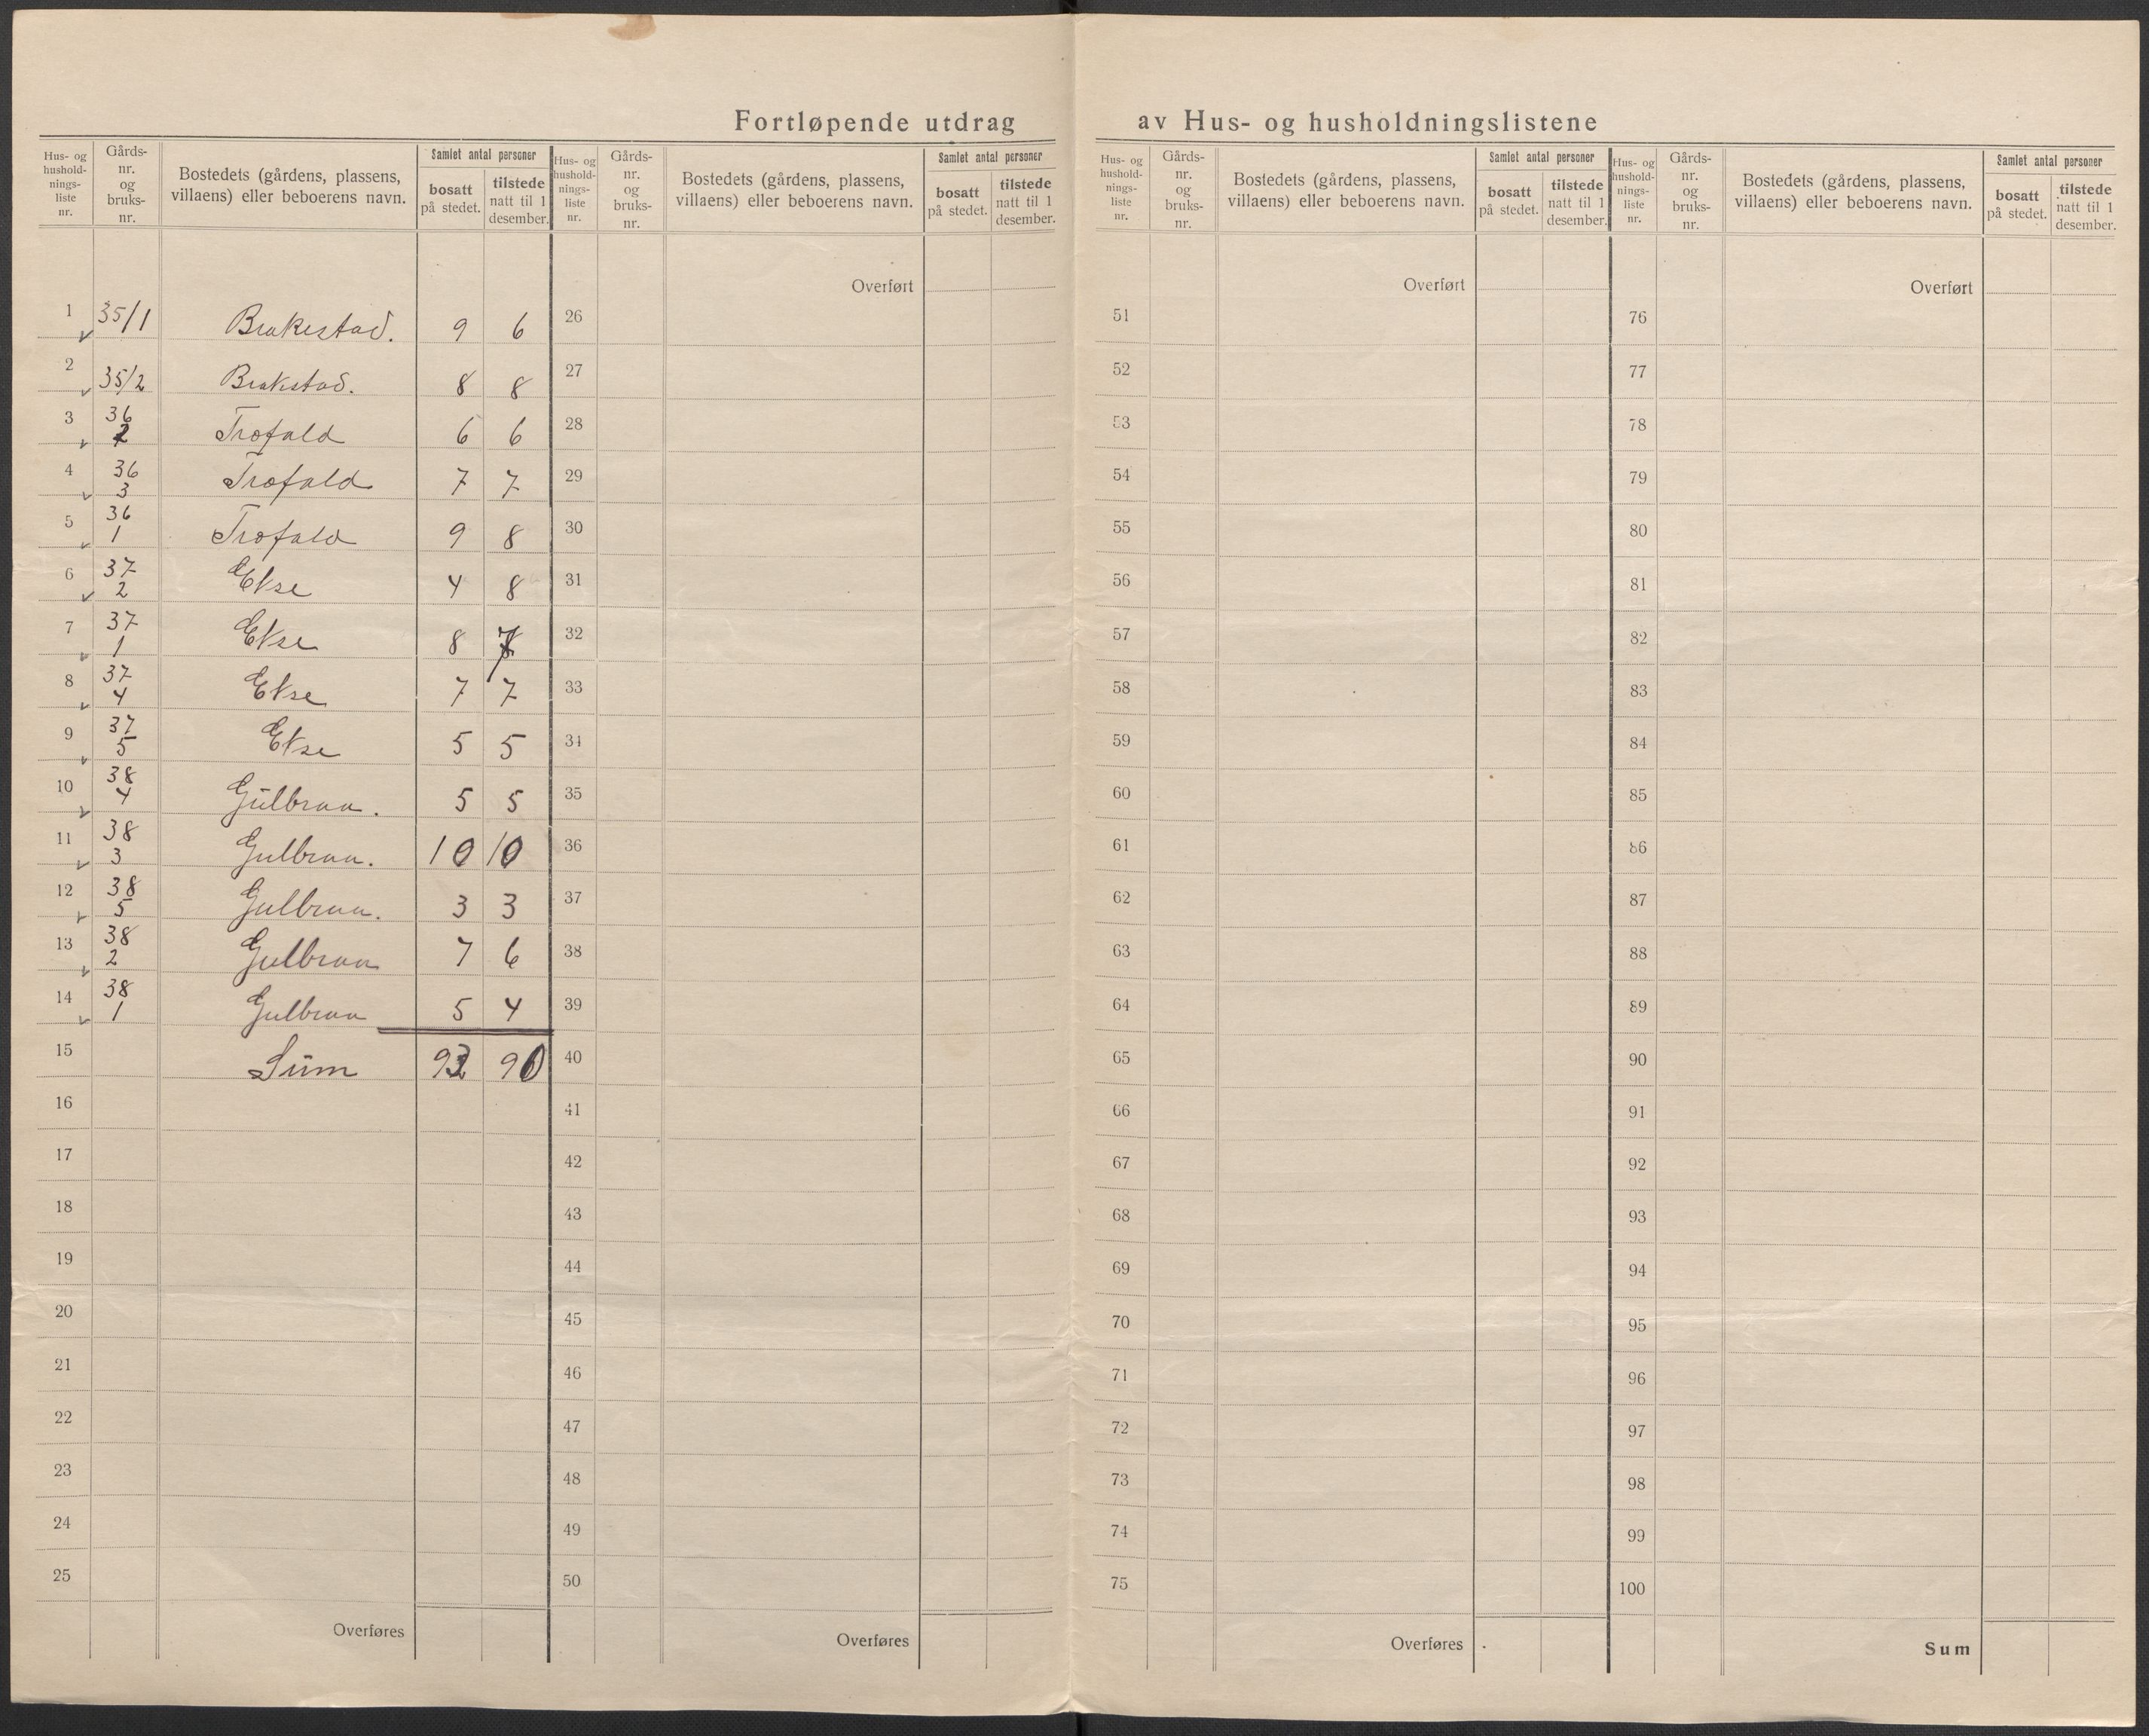 Fortløpende utdrag av Hus- og husholdningslistene
Hus- og hushold-nings-liste nr. Gårds-nr. og bruks-nr. Bostedets (gårdens, plassens, villaens) eller beboerens navn. Samlet antal personer bosatt på stedet. tilstede natt til 1 desember.
1 35/1 Brakestad. 9 6
2 35/2 Brakstad. 8 8
3 36 2 Trofald 6 6
4 36 3 Trofald 7 7
5 36 1 Trofald 9 8
6 37 2 Ekse 4 8
7 37 1 Ekse 8 7
8 37 4 Ekse 7 7
9 37 5 Ekse 5 5
10 38 4 Gulbraa.  5 5
11 38 3 Gulbraa. 10 10
12 38 5 Gulbraa. 3 3
13 38 2 Gulbraa 7 6
14 38 1 Gulbraa 5 4
15 Sum 93 90
16
17
18
19
20
21
22
23
24
25
Overføres
Hus- og hushold-nings-liste nr. Gårds-nr. og bruks-nr. Bostedets (gårdens, plassens, villaens) eller beboerens navn. Samlet antal personer bosatt på stedet. tilstede natt til 1 desember.
Overført
26
27
28
29
30
31
32
33
34
35
36
37
38
39
40
41
42
43
44
45
46
47
48
49
50
Overføres
Hus- og hushold-nings-liste nr. Gårds-nr. og bruks-nr. Bostedets (gårdens, plassens, villaens) eller beboerens navn. Samlet antal personer bosatt på stedet. tilstede natt til 1 desember.
Overført
51
52
53
54
55
56
57
58
59
60
61
62
63
64
65
66
67
68
69
70
71
72
73
74
75
Overføres
Hus- og hushold-nings-liste nr. Gårds-nr. og bruks-nr. Bostedets (gårdens, plassens, villaens) eller beboerens navn. Samlet antal personer bosatt på stedet. tilstede natt til 1 desember.
Overført
76
77
78
79
80
81
82
83
84
85
86
87
88
89
90
91
92
93
94
95
96
97
98
99
100
Sum